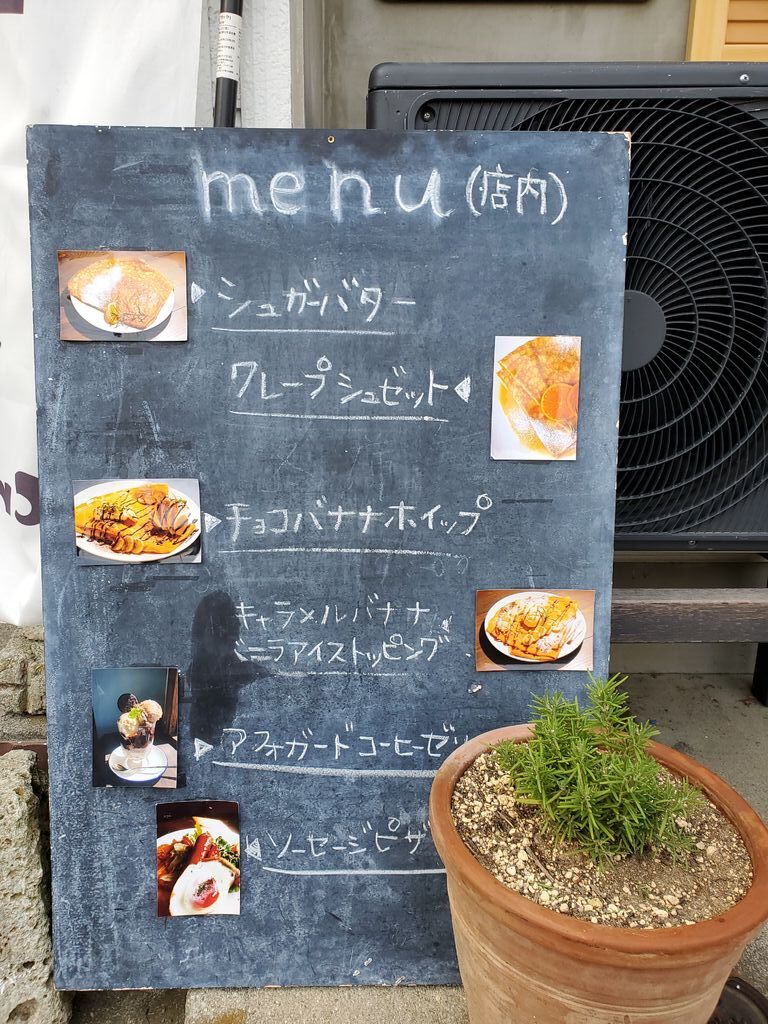 menu (店内)
シュガーバター
クレープシュゼット
チョコバナナホイップ
キャラメルバナナ
バニラアイストッピング
アフォガードコーヒーゼ
ソーセージピザ